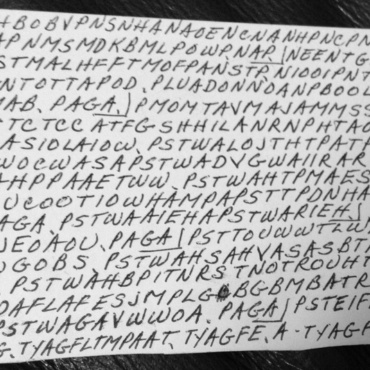 HBOBVPNSNHANAOENCNANHPNCPN
APNMSMDKBMLPOWPNAP.|NEENTG
STMALHFFTMOFPANSTP,NIOOIPNT
NTOTTAPOD, PLUADONNOANPBOOL
MAB, PAGA.)PMOMTAVMAJAMMSS
TCTCC ATFGSHHILANRNPHTAO
ASIOLAIOW. PSTWALOJTHTPATP
WOCWASAPSTWADVGWAIIRAR
AHPPAAETWW. PSTWAHTPMAES
UCOOTIOWHAMPAPSTTPDNHA
AGA. PSTWAAIEHAPSTWARIEH.|
UEOAOU, PAGA|PSTTOUWWTLW
UGOBS. PSTWAHSAHVASASBTA
. PSTWAHBPITNRS TNOTROUHT
OAFLAFAESJMPLG BGBMBATR
PSTWAGAVWWOA. PAGA)PSTEIF
G.TYAGFLTMPAAT, TYAGFE, A-TYAGF